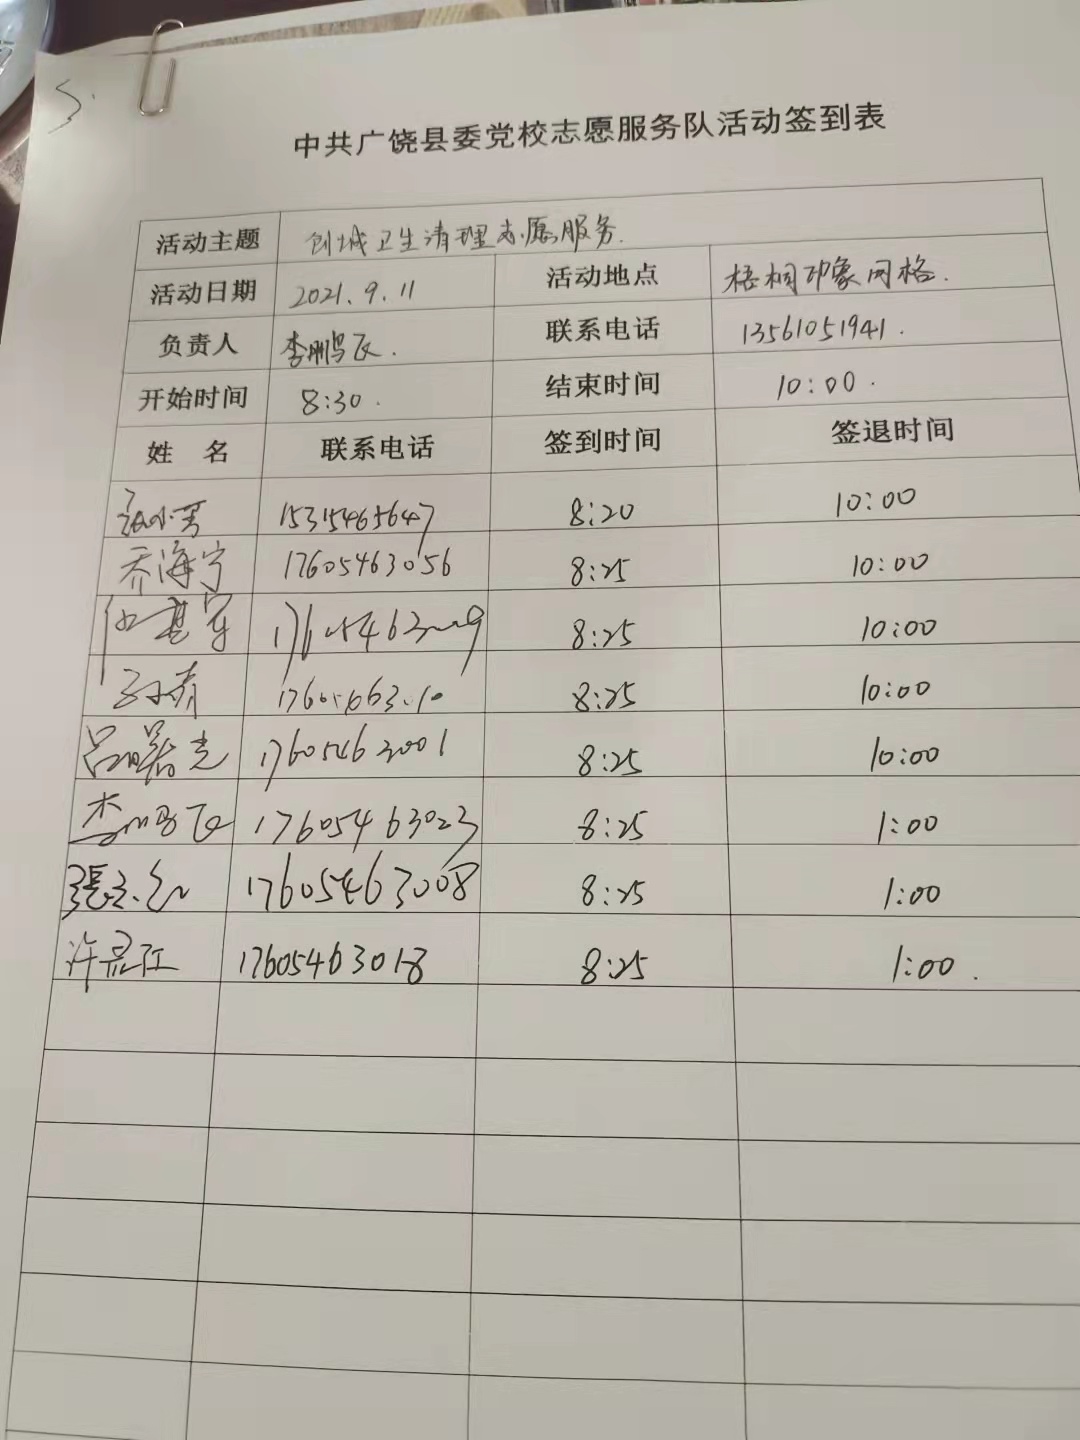 5.
中共广饶县委党校志愿服务队活动签到表
活动主题 创城卫生清理志愿服务.
活动日期 2021.9.11 活动地点 梧桐印象网格.
负责人 李鹏飞. 联系电话 13561051941.
开始时间 8:30. 结束时间 10:00.
姓 名 联系电话 签到时间 签退时间
15315465647 8:20 10:00
乔海宁 17605463056 8:25 10:00
8:25 10:00
8:25 10:00
吕曙光 17605463001 8:25 10:00
李鹏飞 17605463023 8:25 1:00
17605463008 8:25 1:00
17605463018 8:25 1:00.